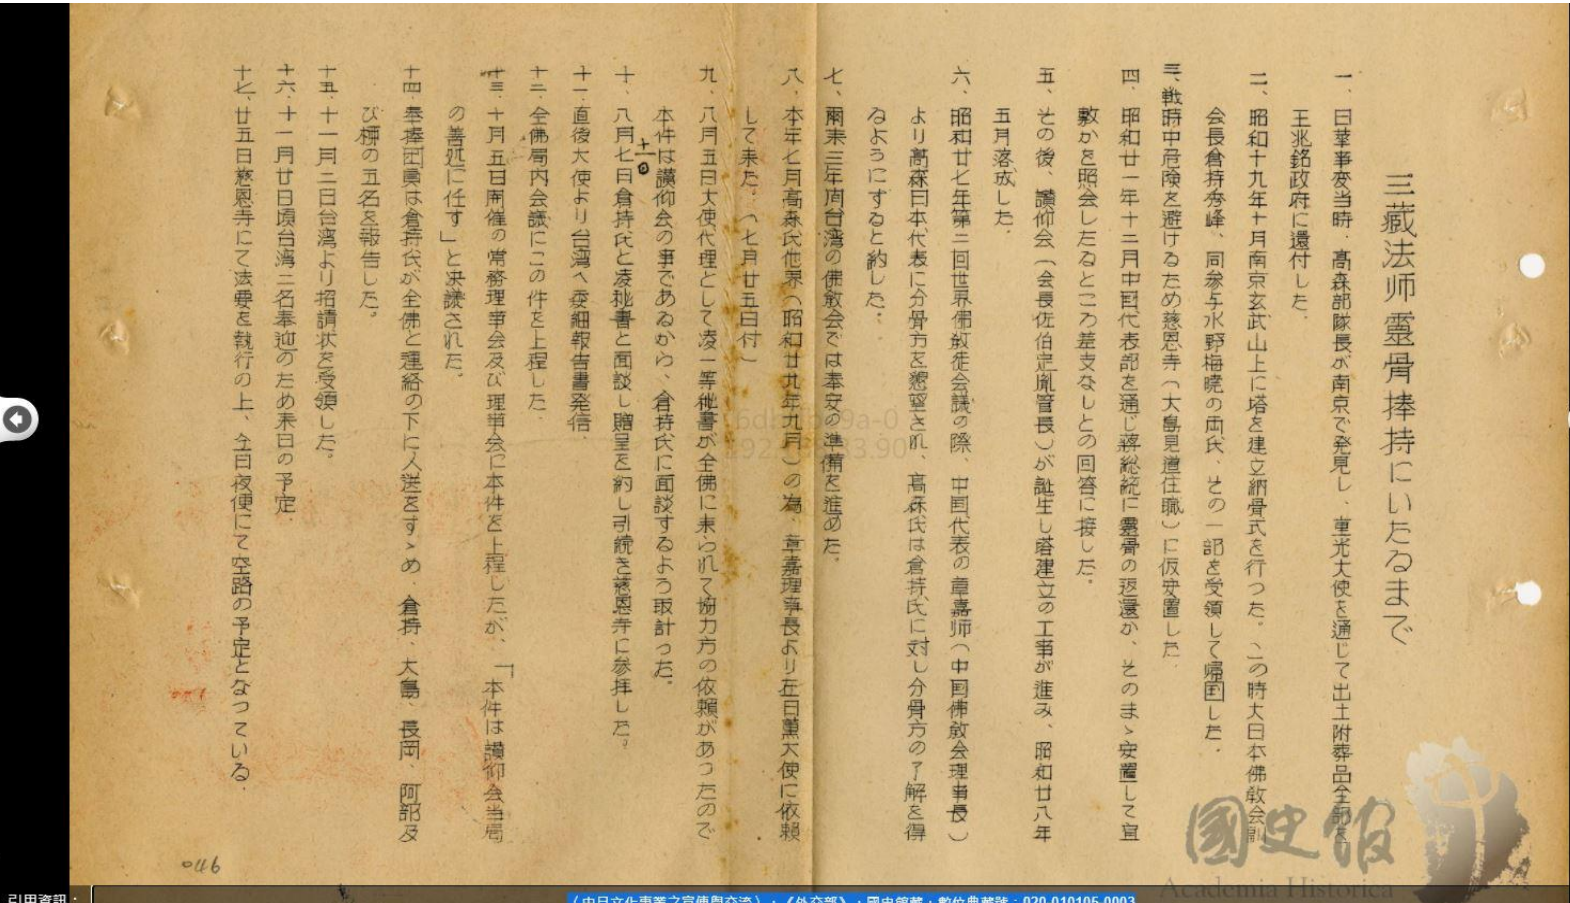 三藏法师靈骨捧持にいたるまで
一、日華事変当時、髙森部隊長が南京で発見し、重光大使を通じて出土附葬品全部を
王兆銘政府に還付した。
二、昭和十九年十月南京玄武山上に塔を建立納骨式を行つた。この時大日本佛教会副
会長倉持秀峰、同参与水野梅曉の両氏、その一部を受領して帰国した。
三、戦時中危険を避けるため慈恩寺（大島見道住職）に仮安置した
四、昭和廿一年十二月中国代表部を通じ蒋総統に靈骨の返還か、そのまゝ安置して宜
敷かを照会したるところ差支なしとの回答に接した。
五、その後、讃仰会（会長佐伯定胤管長）が誕生し塔建立の工事が進み、昭和廿八年
五月落成した。
六、昭和廿七年第二回世界佛敎徒会議の際、中国代表の章嘉师（中国佛敎会理事長）
より髙森日本代表に分骨方を懇望され、髙森氏は倉持氏に対し分骨方の了解を得
るようにすると約した。
七、爾来三年間台湾の佛敎会では奉安の準備を進めた。
八、本年七月高森氏他界（昭和廿九年九月）の為、章嘉理事長より在日董大使に依頼
して来た。（七月廿五日付）
九、八月五日大使代理として凌一等秘書が全佛に来られて協力方の依頼があつたので
本件は讃仰会の事であるから、倉持氏に面談するよう取計つた。
十、八月七日倉持氏と凌秘書と面談し贈呈を約し引続き慈恩寺に参拝した。
十一、直後大使より台湾へ委細報告書発信、
十二、全佛局内会議にこの件を上程した、
十三、十月五日開催の常務理事会及び理事会に本件を上程したが、「本件は讃仰会当局
の善処に任す」と決議された。
十四、奉捧団員は倉持氏が全佛と連絡の下に人送をすゝめ、倉持、大島、長岡、阿部及
び柳の五名を報告した。
十五、十一月二日台湾より招請状を受領した。
十六、十一月廿日頃台湾二名奉迎のため来日の予定
十七、廿五日慈恩寺にて法要を執行の上、全日夜便にて空路の予定となつている。
046
國史館
Academia Historica
引用資訊：
〈中日文化事業之宣傳與交流〉，《外交部》，國史館藏，數位典藏號：020-010105-0003